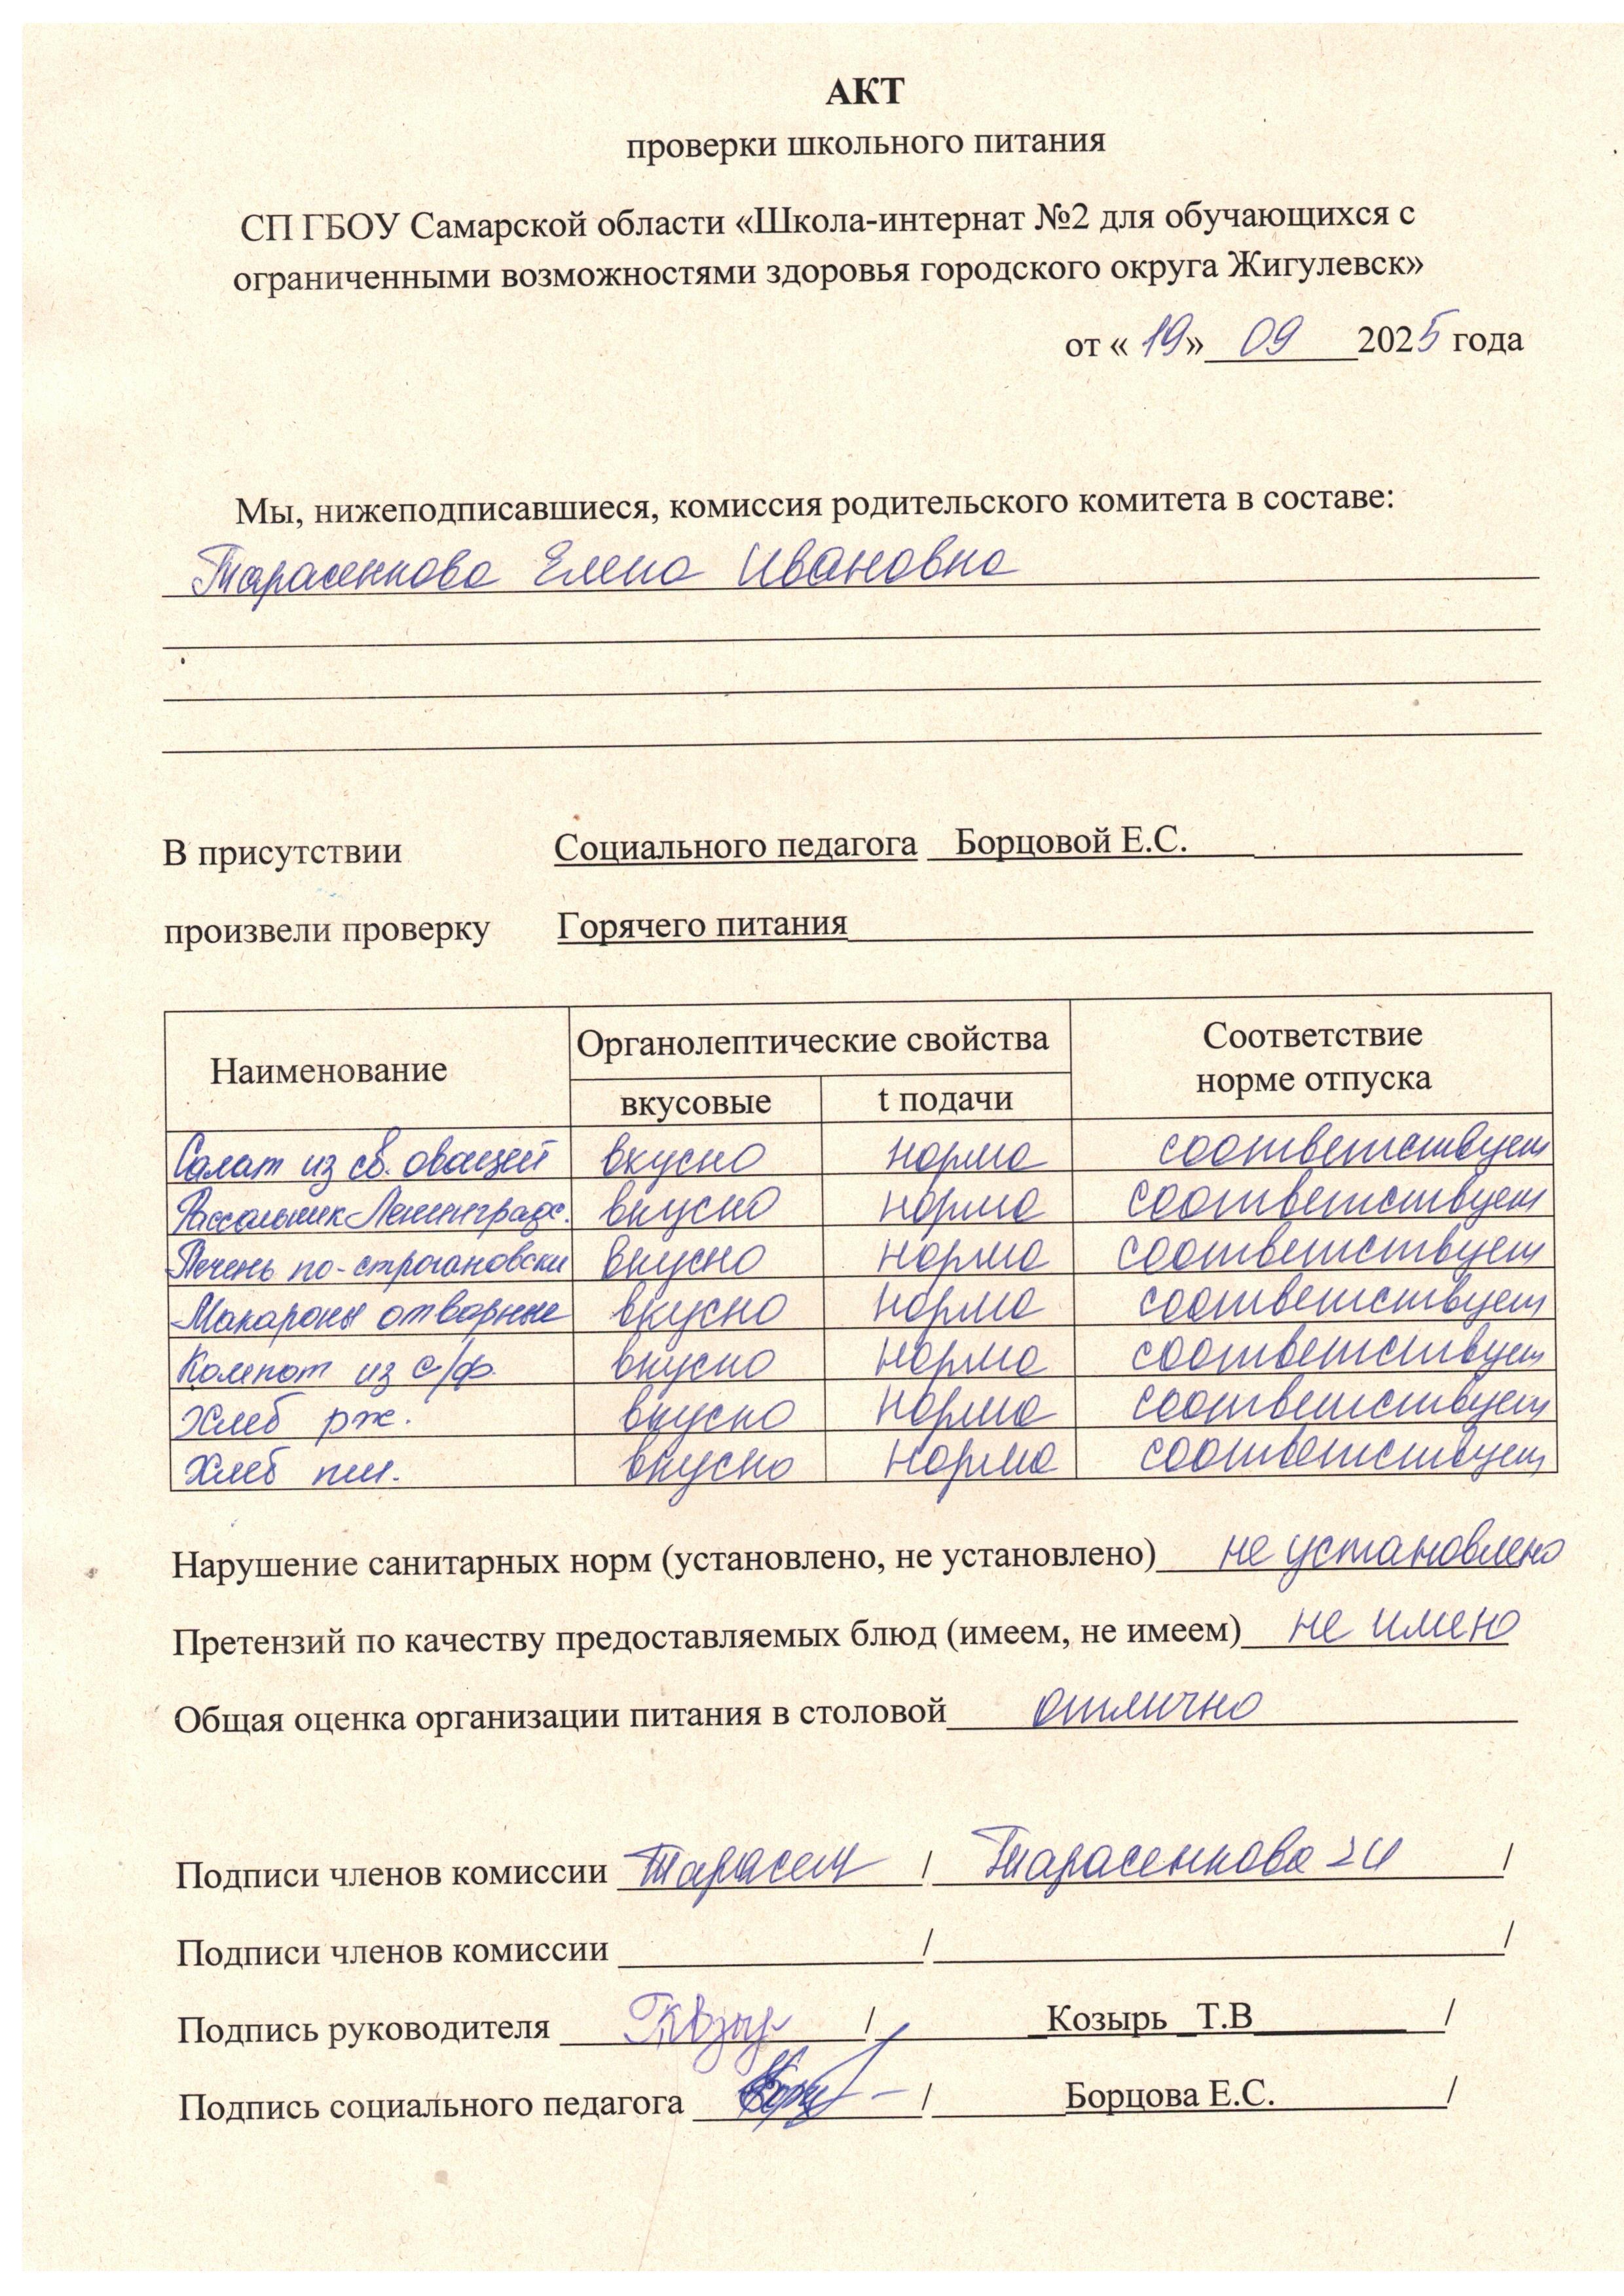 АКТ
проверки школьного питания
СП ГБОУ Самарской области «Школа-интернат №2 для обучающихся с
ограниченными возможностями здоровья городского округа Жигулевск»
от « 19» 09 2025 года
Мы, нижеподписавшиеся, комиссия родительского комитета в составе:
Тарасенкова Елена Ивановна
В присутствии Социального педагога Борцовой Е.С.
произвели проверку Горячего питания
Наименование Органолептические свойства Соответствие норме отпуска
вкусовые t подачи
Салат из св. овощей вкусно норма соответствует
Рассольник Ленинградс. вкусно норма соответствует
Печень по-строгановски вкусно норма соответствует
Макароны отварные вкусно норма соответствует
Компот из с/ф. вкусно норма соответствует
Хлеб рж. вкусно норма соответствует
Хлеб пш. вкусно норма соответствует
Нарушение санитарных норм (установлено, не установлено) не установлено
Претензий по качеству предоставляемых блюд (имеем, не имеем) не имею
Общая оценка организации питания в столовой отлично
Подписи членов комиссии Тарасен / Тарасенкова ЕИ /
Подписи членов комиссии / /
Подпись руководителя / Козырь Т.В /
Подпись социального педагога / Борцова Е.С. /